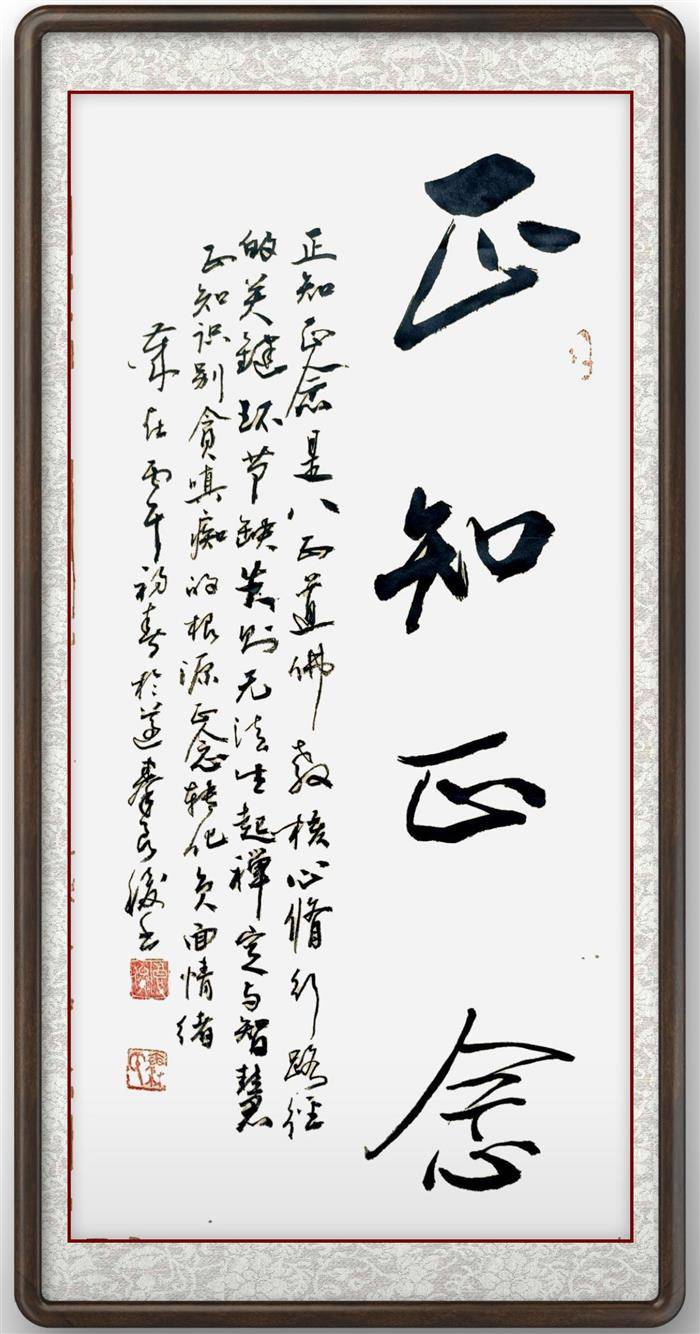 正知正念
正知正念是八正道佛教核心修行路径
的关键环节缺失则无法生起禅定与智慧
正知识别贪嗔痴的根源正念转化负面情绪
岁在 年初春於 秦良 书